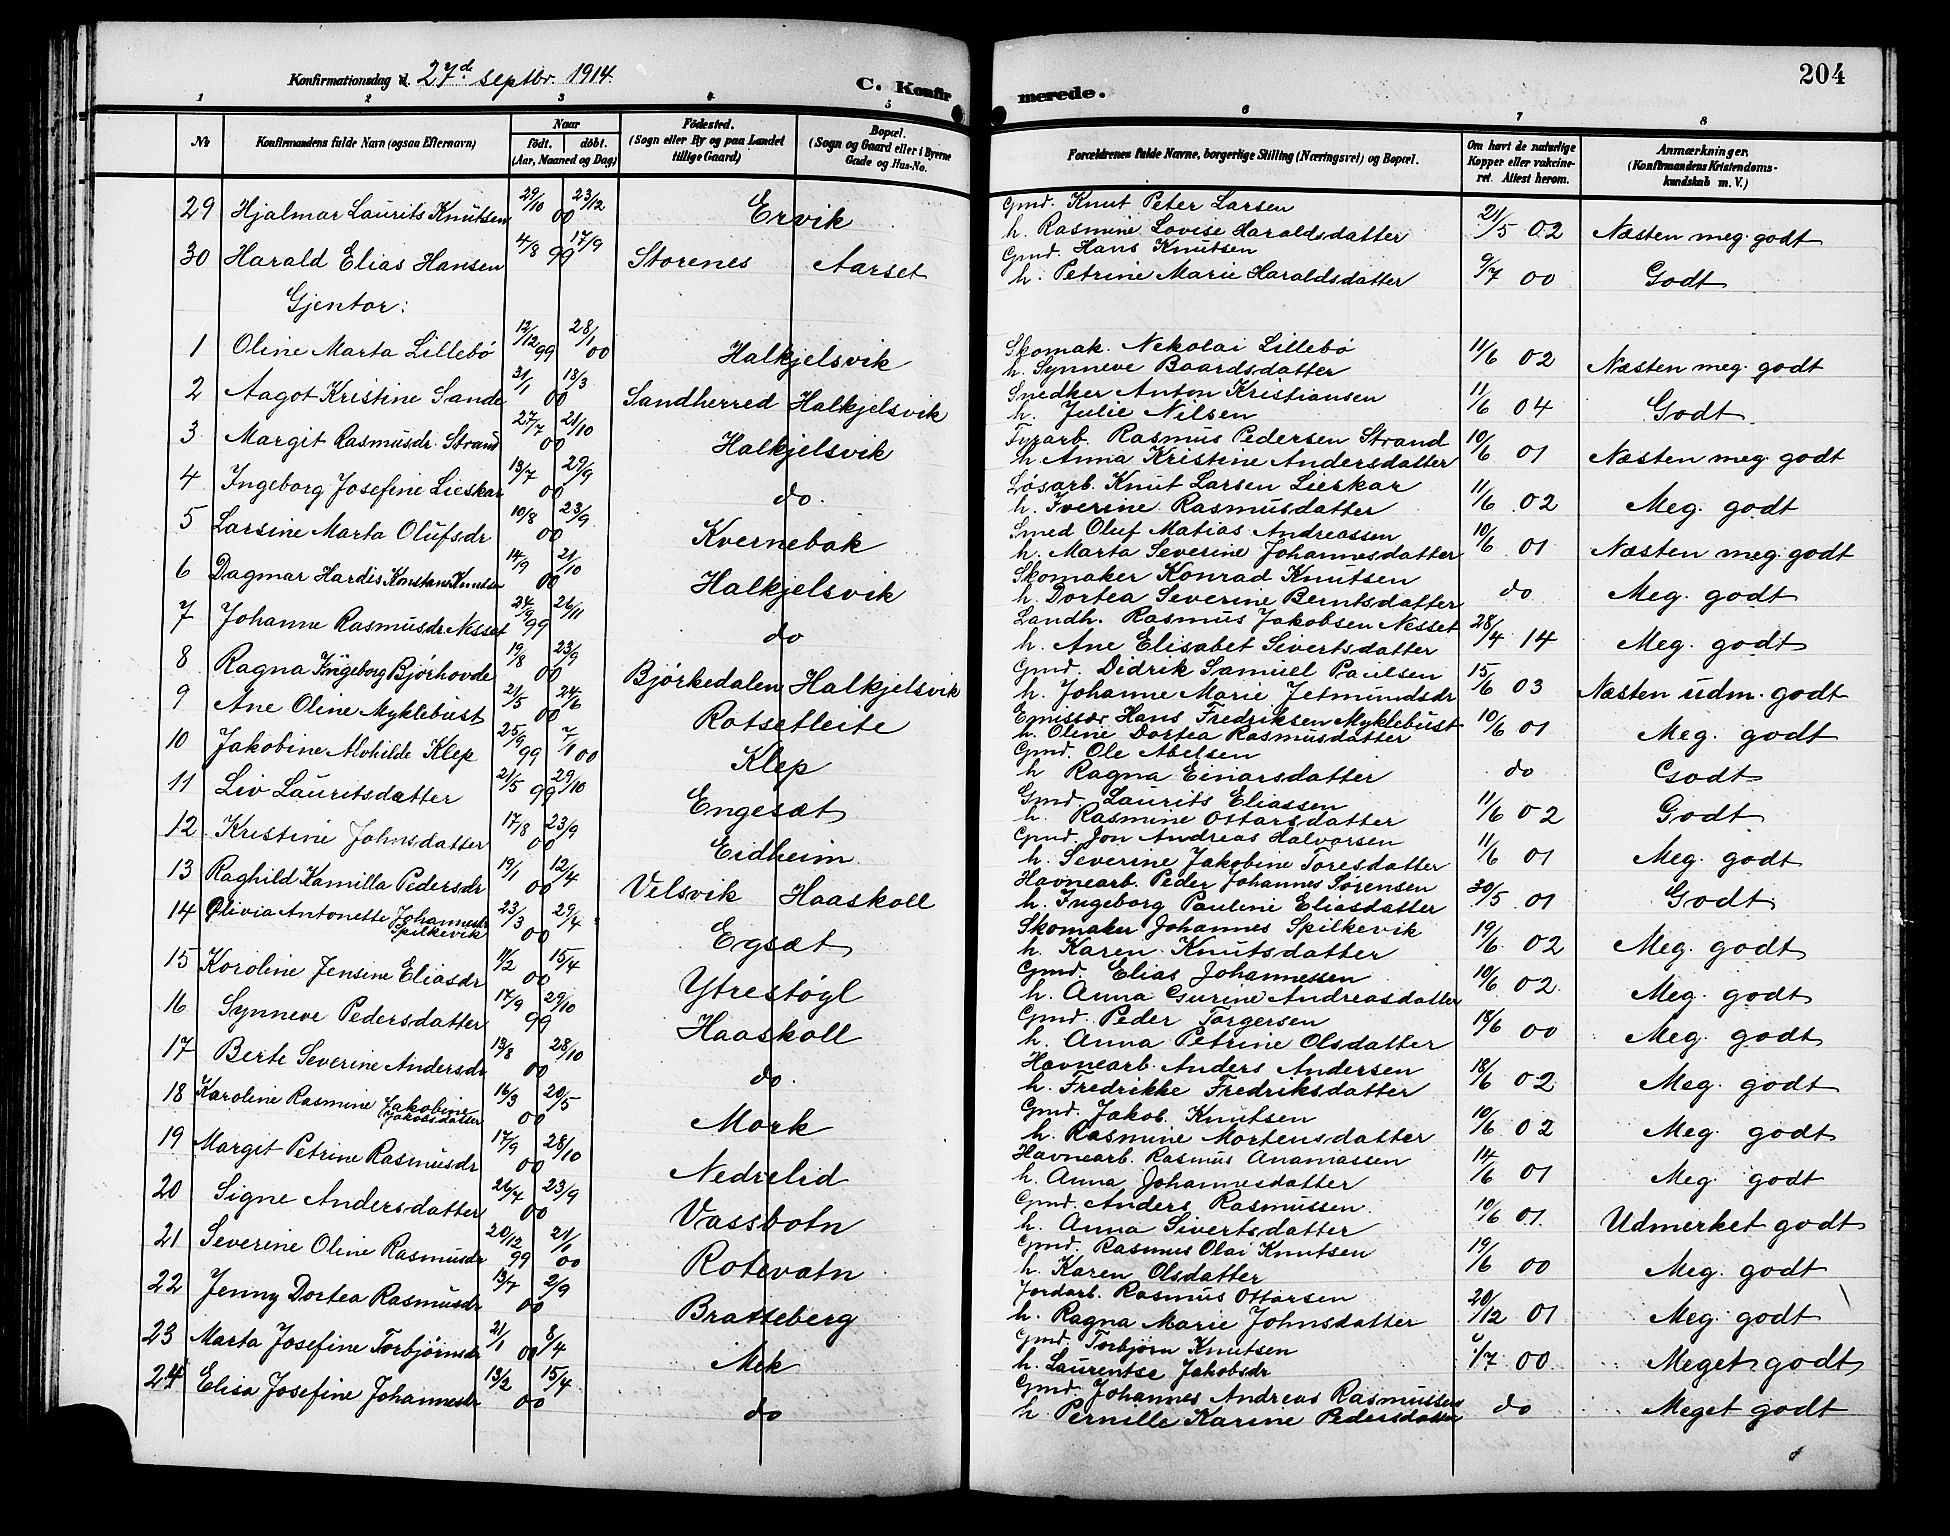 204
Konfirmationsdag d. 27de septbr. 1914.
C. Konfirmerede.
1 2 3 4 5 6 7 8
No Konfirmandens fulde Navn (ogsaa Efternavn) Naar født. døbt. (Aar, Maaned og Dag) Fødested. (Sogn eller By og paa Landet tillige Gaard) Bopæl. (Sogn og Gaard eller i Byerne Gade og Hus-No. Forældrenes fulde Navne, borgerlige Stilling (Næringsvei) og Bopæl. Om havt de naturlige Kopper eller vaccineret. Attest herom. Anmærkninger. (Konfirmandens Kristendomskundskab m. V.)
29 Hjalmar Laurits Knutsen 29/10 00 23/12 Ervik Gmd. Knut Peter Larsen
h. Rasmine Lovise Haraldsdatter 21/5 02 Næsten meg. godt
30 Harald Elias Hansen 4/8 99 17/9 Storenes Aarset Gmd. Hans Knutsen
h. Petrine Marie Haraldsdatter 9/7 00 Godt
Gjentor:
1 Oline Marta Lillebø 12/12 99 28/1 00 Halkjelsvik Skomak. Nekolai Lillebø
h. Synneve Baardsdatter 11/6 02 Næsten meg. godt
2 Aagot Kristine Sande 31/1 00 18/3 Sandherred Halkjelsvik Snedker Anton Kristiansen
h. Julie Nilsen 11/6 04 Godt
3 Margit Rasmusdr. Strand 27/7 00 21/10 Halkjelsvik Fyrarb. Rasmus Pedersen Strand
h. Anna Kristine Andersdatter 10/6 01 Næsten meg godt
4 Ingeborg Josefine Lieskar 13/7 00 29/9 do. Løsarb. Knut Larsen Lieskar
h. Iverine Rasmusdatter 11/6 02 Meg. godt
5 Larsine Marta Olufsdr 10/8 00 23/9 Kvernebak Smed Oluf Matias Andreassen
h. Marta Severine Johannesdatter 10/6 01 Næsten meg. godt
6 Dagmar Hardis Konstanse Knutsen 14/9 00 21/10 Halkjelsvik Skomaker Konrad Knutsen
h. Dortea Severine Berntsdatter do Meg. godt
7 Johanne Rasmusdr. Nesset 24/9 99 26/11 do Landh. Rasmus Jakobsen Nesset
h. Ane Elisabet Sivertsdatter 28/4 14 Meg. godt
8 Ragna Ingeborg Bjørhovde 19/8 00 23/9 Bjørkedalen Halkjelsvik Gmd. Didrik Samuel Paulsen
h. Johanne Marie Jetmundsdr 15/6 03 Næsten udm. godt
9 Ane Oline Myklebust 21/5 00 24/6 Rotsetleite Emissær Hans Fredriksen Myklebust
h. Oline Dortea Rasmusdatter 10/6 01 Meg. godt
10 Jakobine Alvhilde Klep 25/9 99 7/1 00 Klep Gmd. Ole Abelsen
h Ragna Einarsdatter do Godt
11 Liv Lauritsdatter 21/5 99 29/10 Engesæt Gmd. Laurits Eliassen
h. Rasmine Ottarsdatter 11/6 02 Godt
12 Kristine Johnsdatter 17/8 00 23/9 Eidheim Gmd. Jon Andreas Halvorsen
h. Severine Jakobine Toresdatter 11/6 01 Meg. godt
13 Raghild Kamilla Pedersdr 19/1 00 12/4 Velsvik Haaskoll Havnearb. Peder Johannes Sørensen
h. Ingeborg Pauline Eliasdatter 30/5 01 Godt
14 Olivia Antonette Johannesdr Spilkevik 23/3 00 29/4 Egsæt Skomaker Johannes Spilkevik
h. Karen Knutsdatter 19/6 02 Meg. godt
15 Koroline Jensine Eliasdr 11/2 00 15/4 Ytrestøyl Gmd. Elias Johannessen
h. Anna Gurine Andreasdatter 10/6 02 Meg. godt
16 Synneve Pedersdatter 17/9 99 29/10 Haaskoll Gmd. Peder Torgersen
h. Anna Petrine Olsdatter 18/6 00 Meg. godt
17 Berte Severine Andersdr 13/8 00 28/10 do. Havnearb. Anders Andersen
h. Fredrikke Fredriksdatter 18/6 02 Meg. godt
18 Karoline Rasmine Jakobine Jakobsdatter 16/3 00 20/5 Mork Gmd. Jakob Knutsen
h. Rasmine Mortensdatter 10/6 02 Meg. godt
19 Margit Petrine Rasmusdr 17/9 00 28/10 Nedrelid Havnearb. Rasmus Ananiassen
h. Anna Johannesdatter 14/6 01 Meg. godt
20 Signe Andersdatter 26/7 00 23/9 Vassbotn Gmd. Anders Rasmussen
h. Anna Sivertsdatter 10/6 01. Udmerket godt
21 Severine Oline Rasmusdr 20/12 99 21/1 00 Rotevatn Gmd. Rasmus Olai Knutsen
h. Karen Olsdatter 19/6 00 Meg. godt
22 Jenny Dortea Rasmusdr 13/7 00 2/9 Bratteberg Jordarb. Rasmus Ottarsen
h. Ragna Marie Johnsdatter 20/12 01 Meg. godt
23 Marta Josefine Torbjørnsdr 21/1 00 8/4 Mek Gmd. Torbjørn Knutsen
h. Laurentse Jakobsdr 6/7 00 Meget godt
24 Elisa Josefine Johannesdr 13/2 00 15/4 do Gmd. Johannes Andreas Rasmussen
h. Pernille Karine Pedersdatter do Meget godt